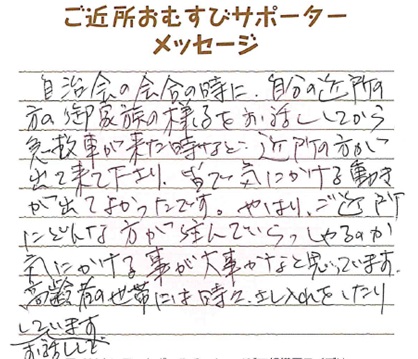 ご近所おむすびサポーター
メッセージ
自治会の会合の時に、自分の近所の
方の御家族の様子をお話ししてから
急救車が来た時など、近所の方が
出て来て下さり、皆で気にかける動き
が出てよかったです。やはり、ご近所
にどんな方が住んでいらっしゃるのか
気にかける事が大事かなと思っています。
高齢者の世帯には時々、出し入れをしたり
しています
お話しして